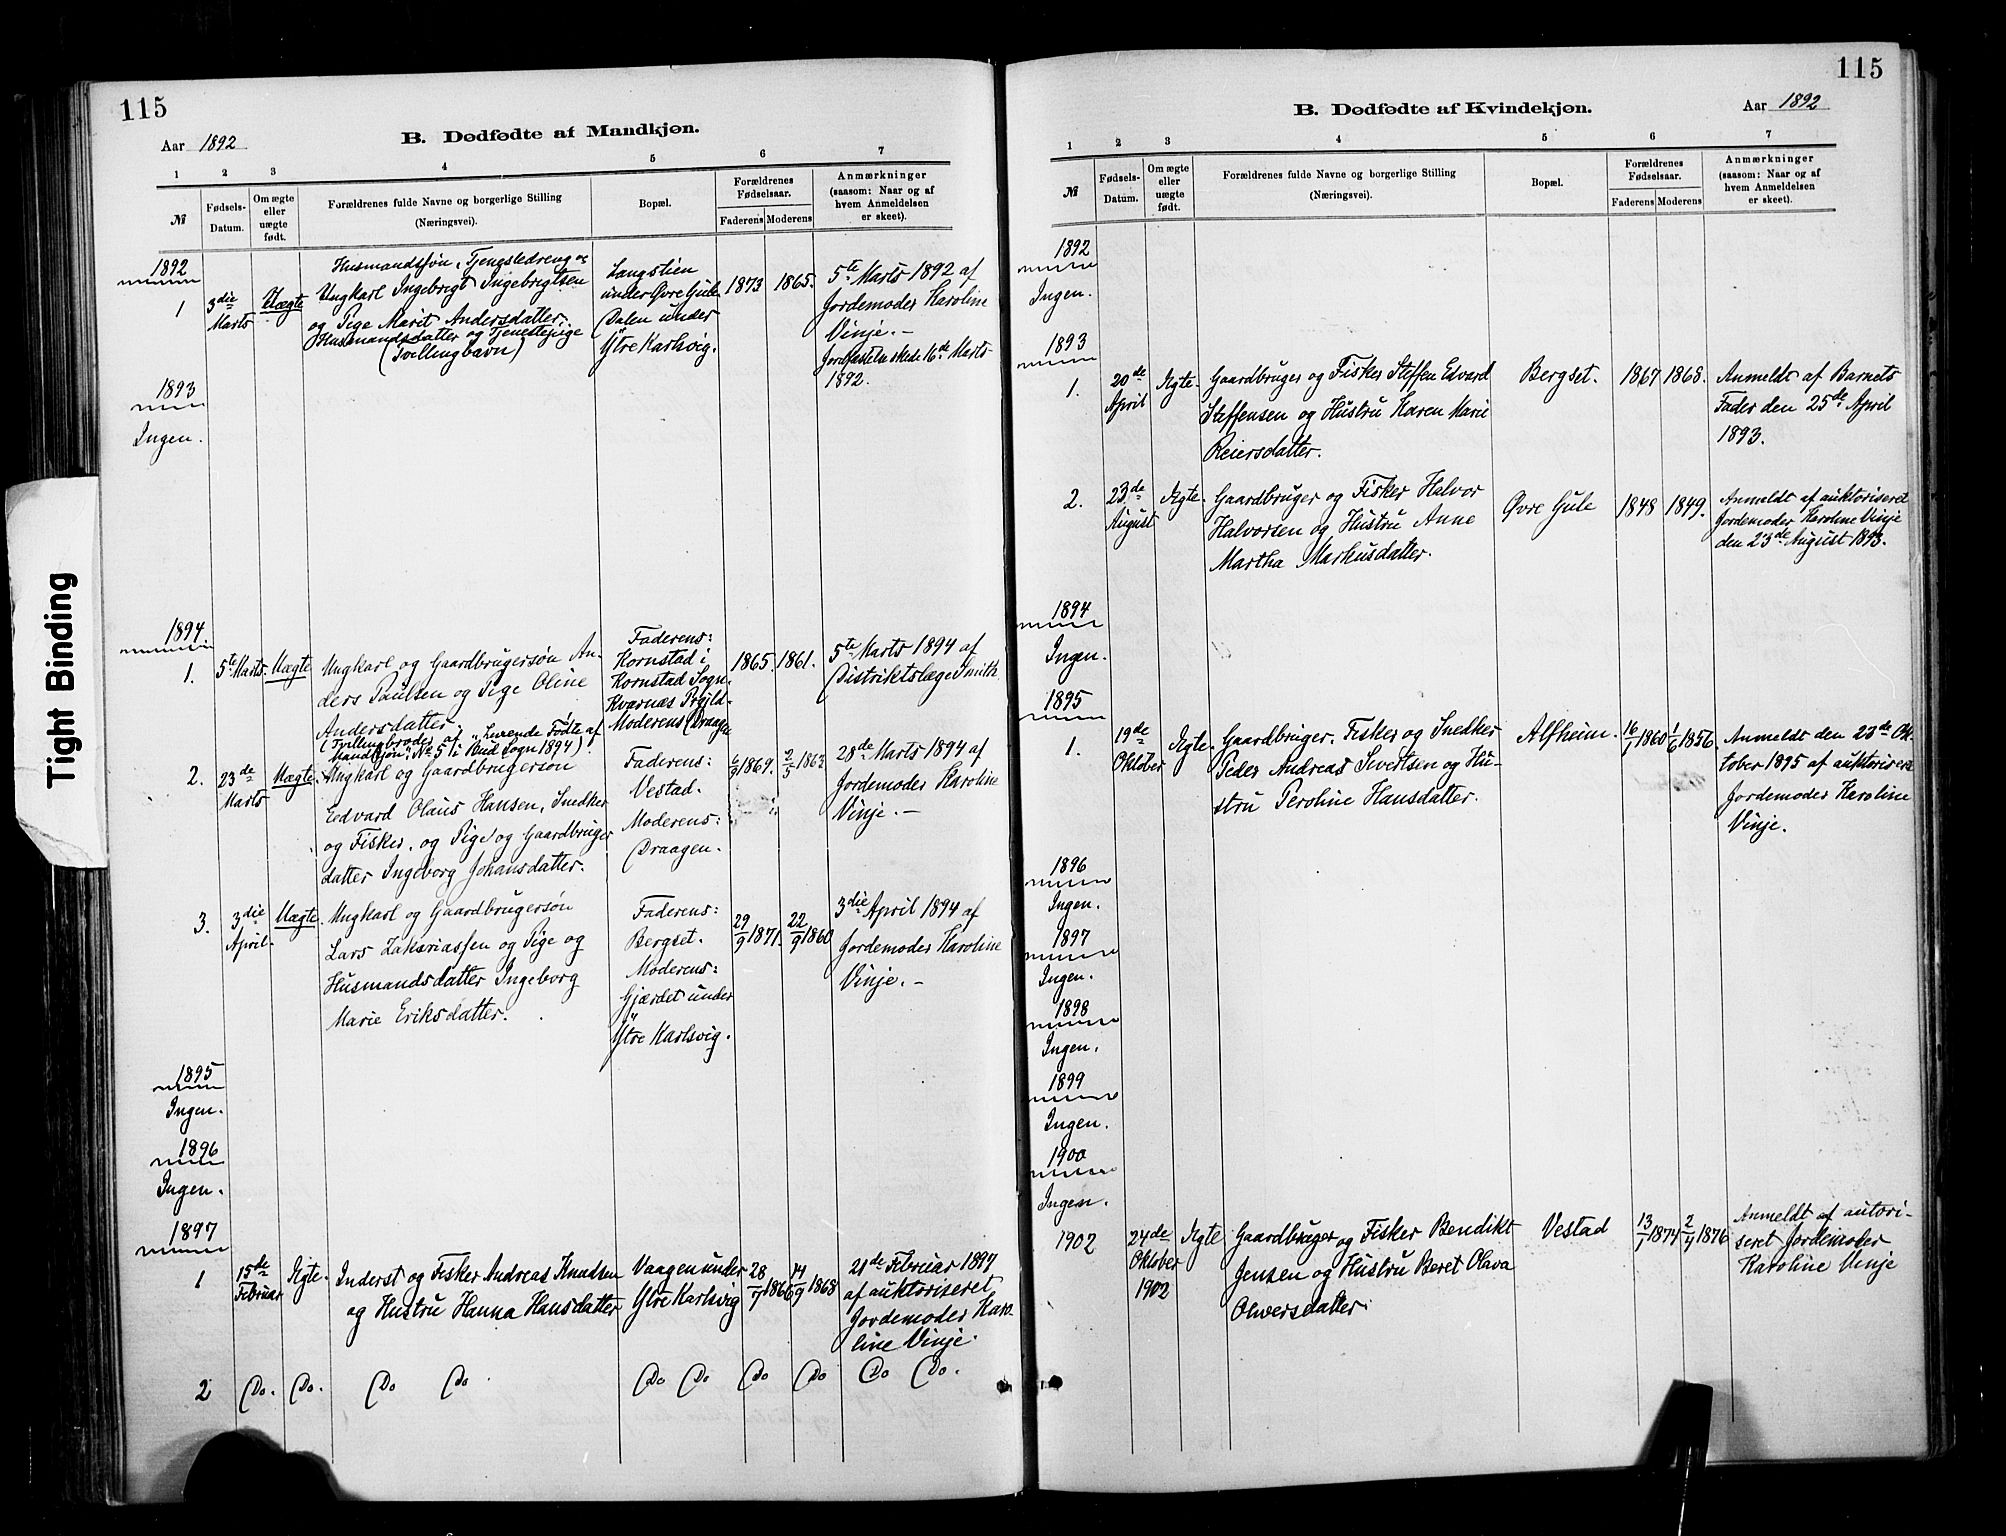 115
Aar 1892
B. Dødfødte af Mandkjøn.
1 2 3 4 5 6 7
№
Fødsels-
Datum.
Om ægte
eller
uægte
født.
Forældrenes fulde Navne og borgerlige Stilling
(Næringsvei).
Bopæl.
Forældrenes
Fødselsaar.
Faderens Moderens
Anmærkninger
(saasom: Naar og af
hvem Anmeldelsen
er skeet).
1892
1
3die
Marts
Uægte
Husmandssøn, Tjenestedreng og
Ungkarl Ingebrigt Ingebrigtsen
og Pige Marit Andersdatter,
Husmandsdatter og Tjenestepige
(Tvillingbarn)
Langstien
under Øvre Gule
Dalen under
Ytre Karlsvig.
1873
1865.
5te Marts 1892 af
Jordemoder Karoline
Vinje. –
Jordfæstelse skede 16de Marts
1892.
1893
Ingen.
1894.
1.
5te Marts.
Uægte
Ungkarl og Gaardbrugersøn An-
ders Paulsen og Pige Oline
Andersdatter.
(Tvillingbroder af "Levende Fødte af
Mandkjøn", No 5 i Bud Sogn 1894)
Faderens:
Kornstad i
Kornstad Sogn.
Kværnæs Prgjld.
Moderens: Draagen
1865.
1861.
5te Marts 1894 af
Distriktslæge Smith
2.
23de
Marts
Uægte.
Ungkarl og Gaardbrugersøn
Edvard Olaus Hansen, Snedker
og Fisker, og Pige og Gaardbruger
datter Ingeborg Johansdatter.
Faderens:
Vestad.
Moderens:
Draagen.
6/9 1869.
2/5 1863
28de Marts 1894 af
Jordemoder Karoline
Vinje. –
3.
3die
April.
Uægte.
Ungkarl og Gaardbrugersøn
Lars Zakariassen og Pige og
Husmandsdatter Ingeborg
Marie Eriksdatter.
Faderens:
Bergset.
Moderens:
Gjærdet under
Ytre Karlsvig.
29/9 1871.
22/9 1860
3die April 1894 af
Jordemoder Karoline
Vinje. –
1895
Ingen.
1896
Ingen.
1897
1
15de
Februar
Ægte.
Inderst og Fisker Andreas Knudsen
og Hustru Hanna Hansdatter
Vaagen under
Ytre Karlsvig
28/7 1866
14/9 1868
21de Februar 1897
af auktoriseret
Jordemoder Karo-
line Vinje.
2 Do. Do. Do Do Do Do Do Do Do Do.
115
Aar 1892
B. Dødfødte af Kvindekjøn.
1 2 3 4 5 6 7
№
Fødsels-
Datum.
Om ægte
eller
uægte
født.
Forældrenes fulde Navne og borgerlige Stilling
(Næringsvei).
Bopæl.
Forældrenes
Fødselsaar.
Faderens Moderens
Anmærkninger
(saasom: Naar og af
hvem Anmeldelsen
er skeet).
1892
Ingen.
1893
1.
20de
April
Ægte.
Gaardbruger og Fisker Steffen Edvard
Steffensen og Hustru Karen Marie
Reiersdatter.
Bergset.
1867
1868.
Anmeldt af Barnets
Fader den 25de April
1893.
2.
23de
August
Ægte.
Gaardbruger og Fisker Halvor
Halvorsen og Hustru Anne
Martha Markusdatter.
Øvre Gule
1848
1849.
Anmeldt af auktoriseret
Jordemoder Karoline Vinje
den 23de August 1893.
1894
Ingen.
1895
1.
19de
Oktober
Ægte.
Gaardbruger, Fisker og Snedker
Peder Andreas Sivertsen og Hu-
stru Peroline Hansdatter.
Alfheim.
16/1 1860
1/6 1856.
Anmeldt den 23de Ok-
tober 1895 af auktoriseret
Jordemoder Karoline
Vinje.
1896
Ingen.
1897
Ingen.
1898
Ingen.
1899
Ingen.
1900
Ingen.
1902
24de
Oktober
1902
Ægte
Gaardbruger og Fisker Bendikt
Jensen og Hustru Beret Olava
Oliversdatter.
Vestad
13/1 1874
2/4 1876
Anmeldt af autori-
seret Jordemoder
Karoline Vinje
Tight Binding